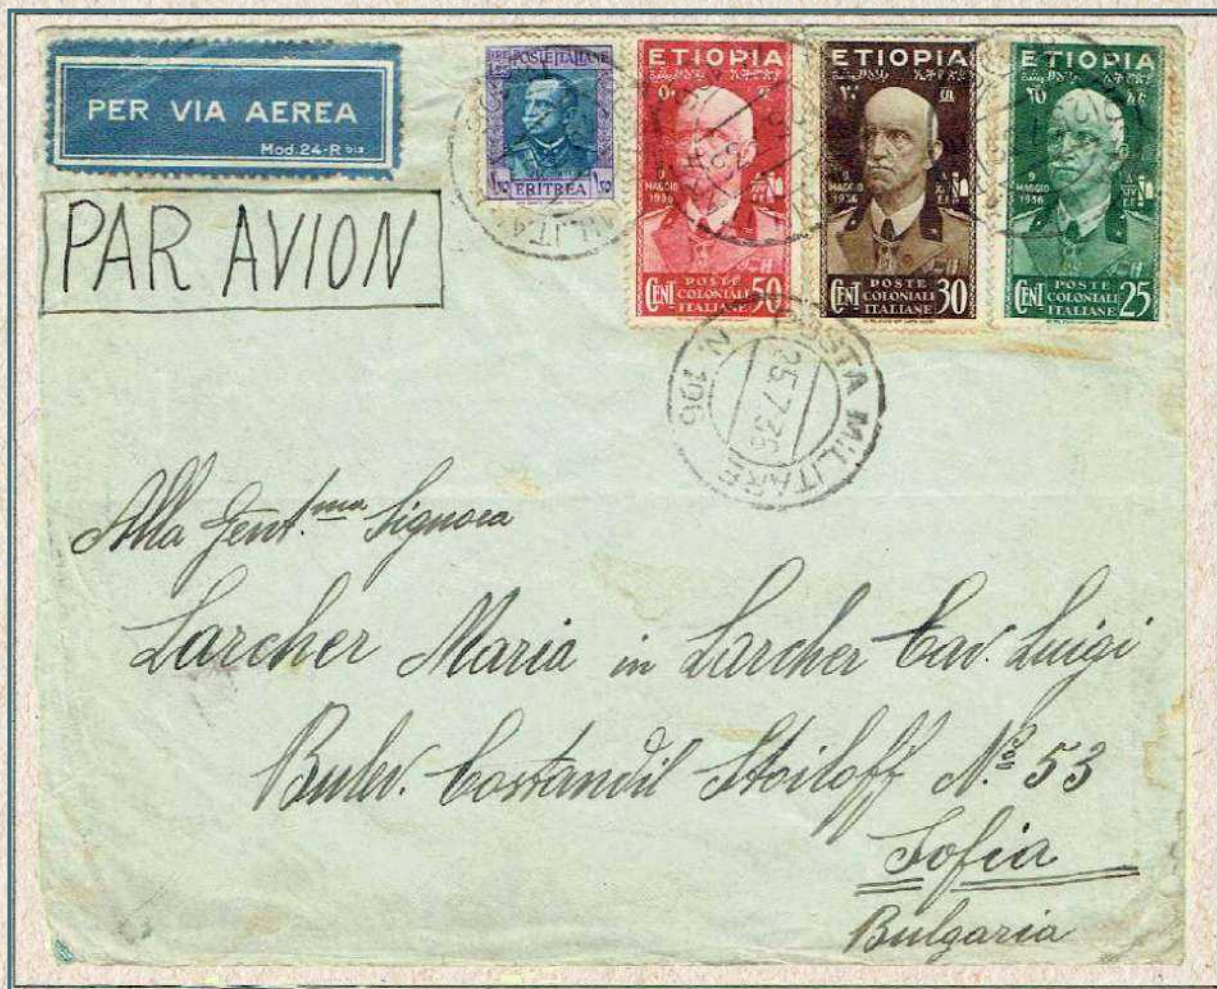 PER VIA AEREA
Mod. 24-R bis
PAR AVION
POSTE ITALIANE
ERITREA
ETIOPIA
9
MAGGIO
1936
A
XIV
E.F.
CENT
POSTE
COLONIALI
ITALIANE
50
ETIOPIA
9
MAGGIO
1936
A
XIV
E.F.
CENT
POSTE
COLONIALI
ITALIANE
30
ETIOPIA
9
MAGGIO
1936
A
XIV
E.F.
CENT
POSTE
COLONIALI
ITALIANE
25
POSTA MILITARE
N. 106
25.7.36
Alla Gent.ma Signora
Larcher Maria in Larcher Cav. Luigi
Bulev. Costandil Stoiloff N.o 53
Sofia
Bulgaria